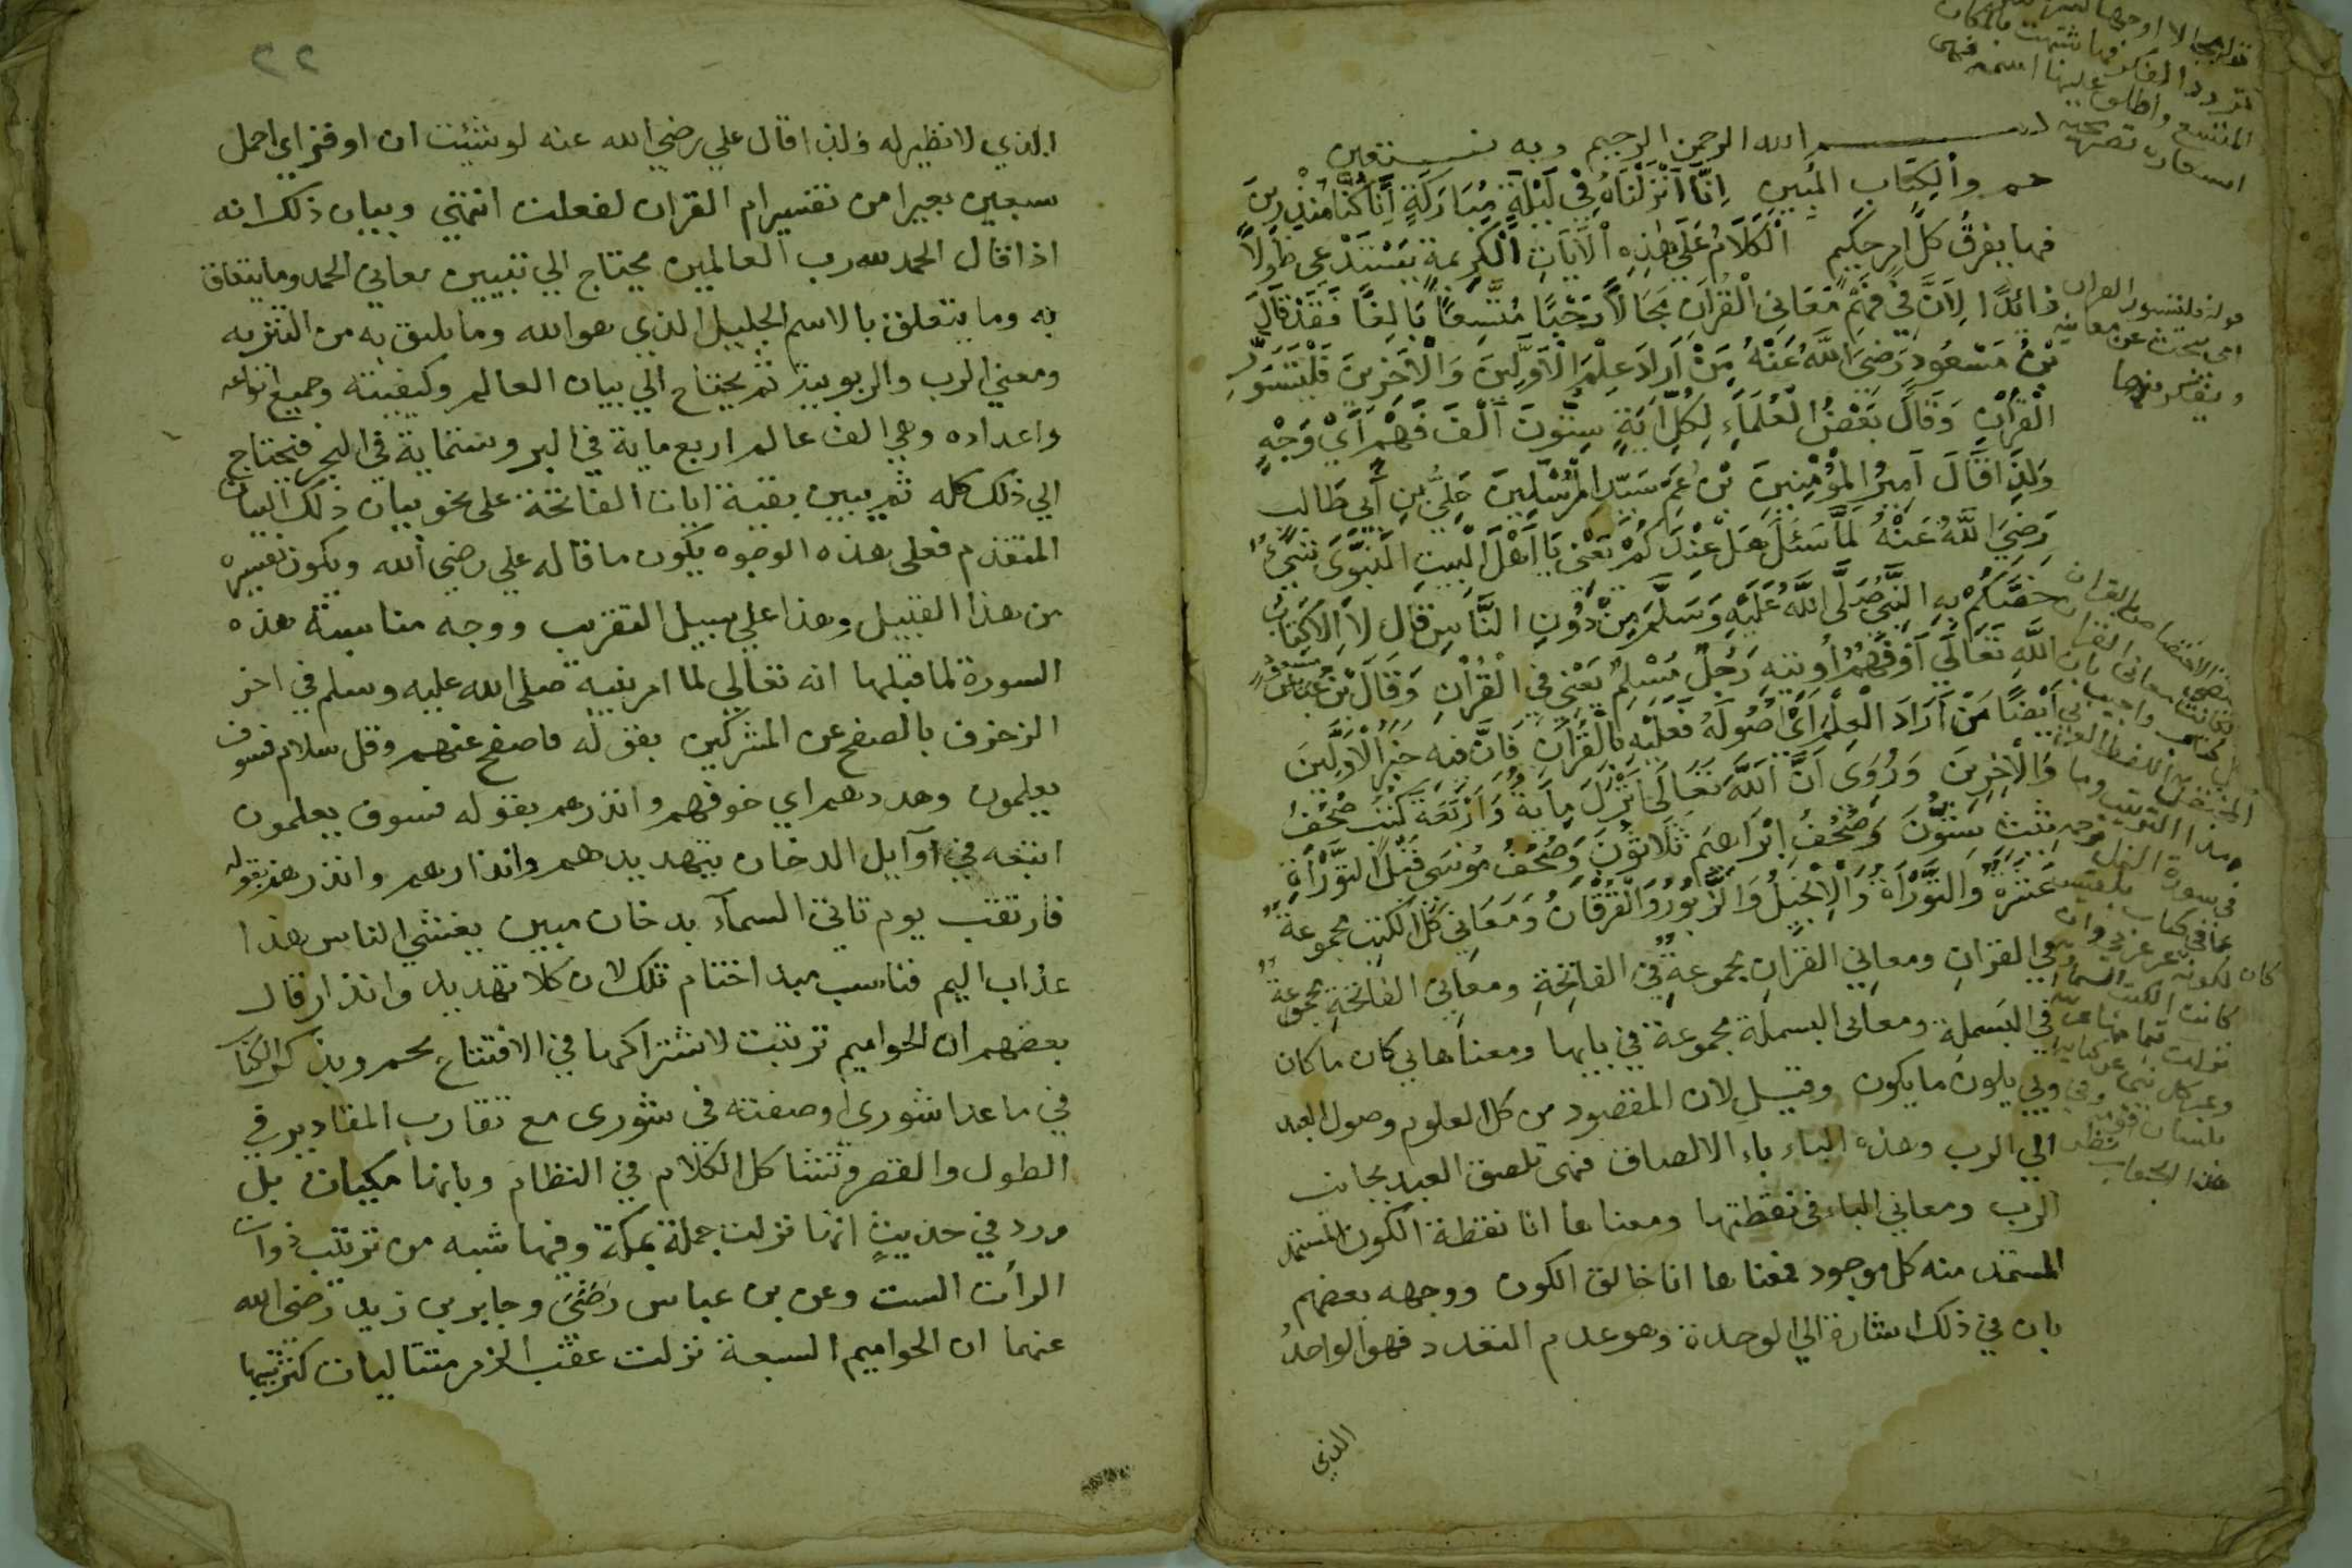 بسم الله الرحمن الرحيم وبه نستعين
حم والْكِتَابِ المُبينِ اِنَّا اَنْزَلْنَاهُ فِيْ لَيْلَةٍ مُبَارَكَةٍ اِنَّا كُنَّا مُنْذِرِينَ
فيها يفرقُ كلُّ امرٍ حكِيمٍ اَلْكَلَامُ عَلَى هٰذِهِ اْلآيَاتِ الْكَرِيمَةِ يَسْتَدْعِي طُولًا
زائدًا لِاَنَّ فِيْ فَهْمِ مَعَانِي الْقُرْاٰنِ مَجَالًا رَحْبًا مُتَّسِعًا بَالِغًا فَقَدْ قَالَ
بْنُ مَسْعُودٍ رَضِيَ اللَّهُ عَنْهُ مَنْ اَرَادَ عِلْمَ الْاَوَّلِينَ وَالْاَخَرِينَ فَلْيَتَسَوَّرِ
الْقُرْاٰنَ وَقَالَ بَعْضُ الْعُلَمَاءِ لِكُلِّ اٰيَةٍ سِتُّونَ اَلْفَ فَهْمٍ اَيْ وَجْهٍ
وَلِذَا قَالَ اَمِيرُ الْمُؤْمِنِينَ بْنُ عَمِّ سَيِّدِ الْمُرْسَلِينَ عَلِيُّ بْنِ أَبِي طَالب
رَضِيَ اللَّهُ عَنْهُ لَمَّا سَئَلَ هَلْ عِنْدَكُمْ يَعْنِي يَا اَهْلَ الْبَيْتِ النَّبَوِيّ شَيْءٌ
خَصَّكُمْ بِهِ النَّبِيُّ صَلَّى اللَّهُ عَلَيْهِ وَسَلَّمَ مِنْ دُونِ النَّاسِ قَالَ لَا اِلَّا كِتَابُ
اللَّهِ تَعَالَي اَوْ فَهْمٌ اُوتيهِ رَجُلٌ مُسْلِمٌ يَعْنِي فِي الْقُرْاٰنِ وَقَالَ بْنُ مَسْعُودٍ
أَيْضًا مَنْ اَرَادَ الْعِلْمَ اَيْ اُصُولَهُ فَعَلَيْهِ بِالْقُرْاٰنِ فَاِنَّ فيهِ خَبَرُ الْاَوَّلِينَ
وَالْاٰخِرِينَ وَرُوِيَ اَنَّ اللَّهَ تَعَالَى اَنْزَلَ مِاَيةً وَاَرْبَعَةَ كُتُبٍ صُحُفُ
شِيْثَ سِتُّونَ وَصُحُفُ اِبْرَاهِيمَ ثَلَاثُونَ وَصُحُفُ مُوسَى قَبْلَ التَّوْرَاةِ
عَشَرَةٌ وَالتَّوْرَاةُ وَالْاِنْجِيلُ وَالزَّبُورُ وَالْفُرْقَانُ وَمَعَانِي كُلِّ الْكُتُبِ مجموعةٌ
في القرانِ ومعانِي القرانِ مجموعةٌ في الفاتحةِ ومعاني الفاتحةِ مجموعةٌ
في البسملةِ ومعانى البسملة مجموعة في بايها ومعناها بي كان ما كان
وبي يكون ما يكون وقيل لان المقصود من كل العلوم وصول العبد
الي الرب وهذه الباء باء الالصاق فهى تلصق العبد بجانب
الرب ومعاني الباء في نقطتها ومعناها انا نقطة الكون المستمد
المستمد منه كل موجود فمعناها انا خالق الكون ووجهه بعضهم
بان في ذلك اشارة الي الوحدة وهو عدم التعدد فهو الواحدُ
الذي
قوله فليتسور القران
اى يبحث عن معانيه
ويتفكر فيها
٢٢
الذي لا نظير له ولذا قال علي رضي الله عنه لو شئت ان اوقر اي احمل
سبعين بعيرا من تفسير ام القران لفعلت انتهى وبيان ذلك انه
اذا قال الحمد لله رب العالمين يحتاج الي تبيين معاني الحمد وما يتعلق
به وما يتعلق بالاسم الجليل الذي هو الله وما يليق به من التنزيه
ومعني الرب والربوبية ثم يحتاج الي بيان العالم وكيفيته وجميع انواعه
واعداده وهي الف عالم اربع ماية في البر وستماية في البحر فيحتاج
الي ذلك كله ثم يبين بقية ايات الفاتحة على نحو بيان ذلك البيان
المتقدم فعلى هذه الوجوه يكون ما قاله علي رضي الله ويكون تفسيره
من هذا القبيل وهذا علي سبيل التقريب ووجه مناسبة هذه
السورة لما قبلها انه تعالي لما امر نبيه صلى الله عليه وسلم في اخر
الزخرف بالصفح عن المشركين بقوله فاصفح عنهم وقل سلام فسوف
يعلمون وهددهم اي خوفهم وانذرهم بقوله فسوف يعلمون
اتبعه في اوآيل الدخان بتهديدهم وانذارهم وانذرهم بقوله
فارتقب يوم تاتى السمآء بدخان مبين يغشي الناس هذا
عذاب اليم فناسب مبدا ختام تلك لان كلا تهديد وانذار قال
بعضهم ان الحواميم ترتبت لاشتراكها في الافتتاح بحم وبذكر الكتاب
في ما عدا شورى او صفته في شورى مع تقارب المقادير في
الطول والقصر وتشاكل الكلام في النظام وبانها مكيات بل
ورد في حديث انها نزلت جملة بمكة وفيها شبه من ترتيب ذوات
الرأت الست وعن بن عباس رَضْيَ وجابر بن زيد رضى الله
عنهما ان الحواميم السبعة نزلت عقب الزمر متتاليات كترتيبها